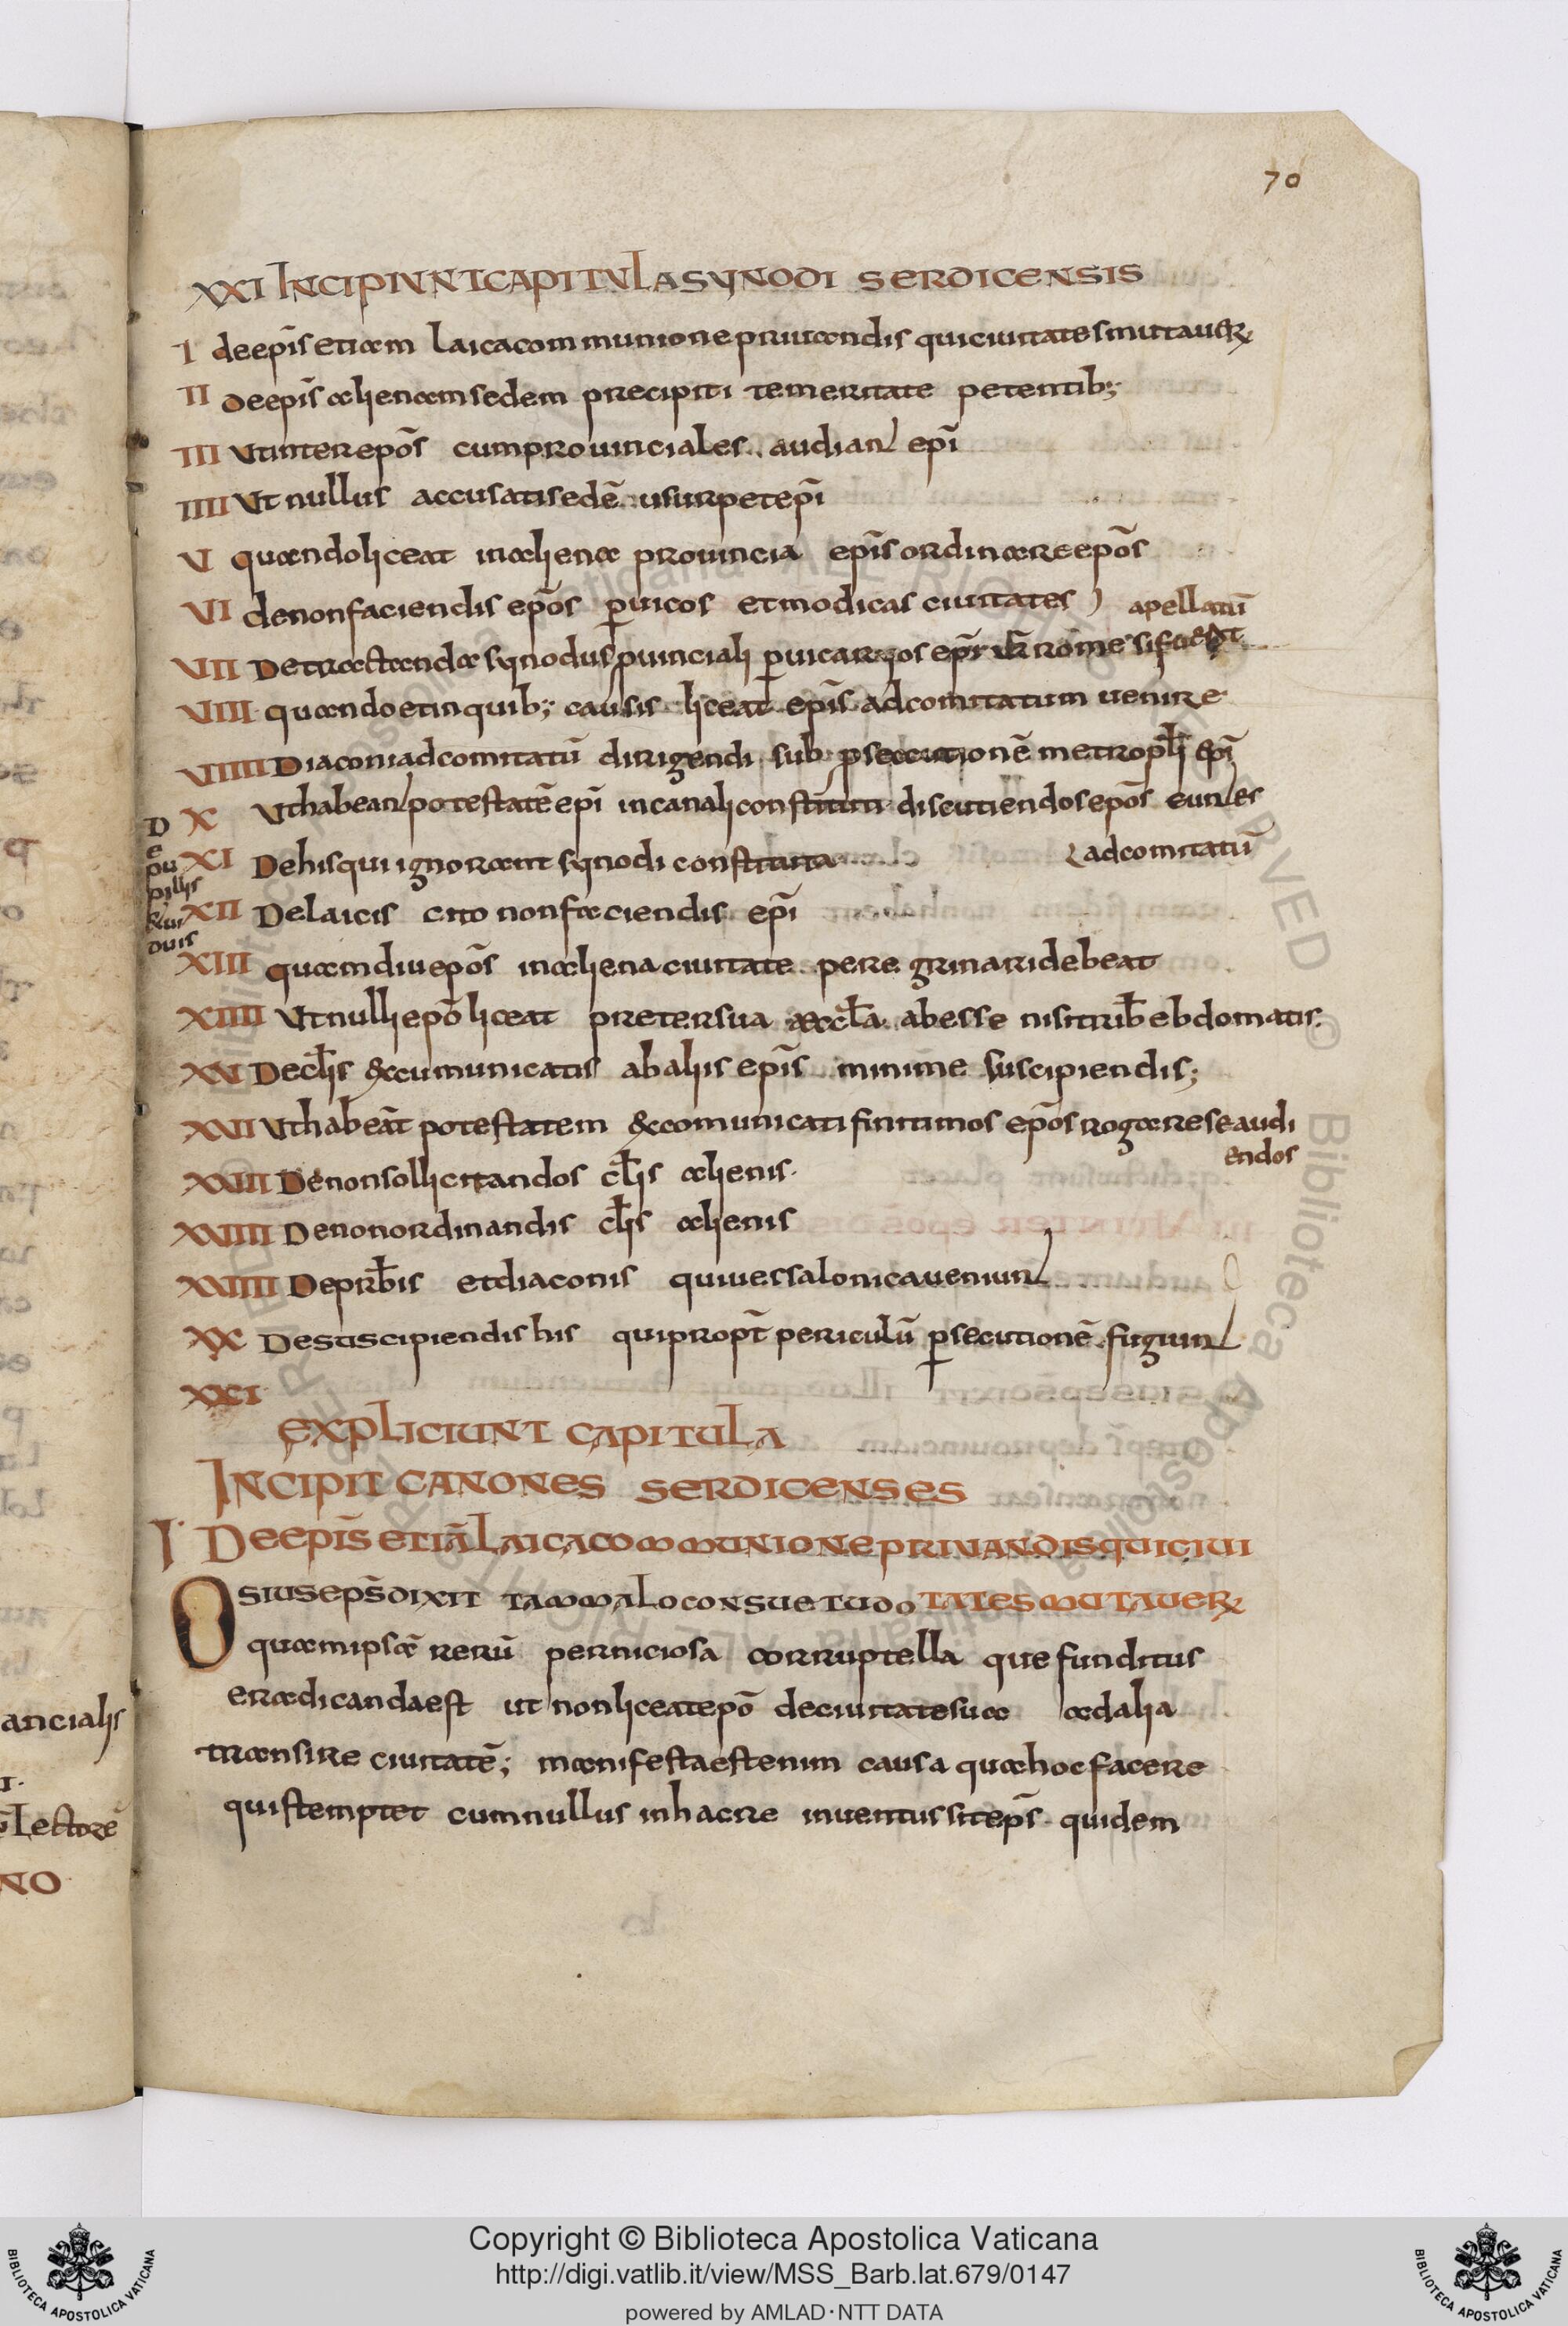 70
XXI INCIPIUNT CAPITULA SYNODI SERDICENSIS
I de ep̄is etiam laica communione priuandis qui ciuitates mutauer̄
II De ep̄is alienam sedem precipiti temeritate petentib;
III Ut inter ep̄os cumprouinciales audian ep̄i
IIII Ut nullus accusati sedē usurpet ep̄i
V quando liceat in aliena prouincia ep̄is ordinare ep̄os
VI de non faciendis ep̄os ꝑ uicos et modicas ciuitates
apellatū
VII De tractanda synodus puinciali ꝑ uicarios
VIII quando et in quib; causis liceat ep̄is ad comitatum uenire
VIIII Diaconi ad comitatū dirigendi sub metropl̄i ep̄i
X Ut habean potestatē ep̄i in canali constituti discutiendos ep̄os eun es
ad comitatū
De pupillis & uiduis
XI De his qui ignorant synodi constituta
XII De laicis cito non faciendis ep̄i
XIII quamdiu ep̄os in aliena ciuitate peregrinari debeat
XIIII Ut nulli ep̄o liceat preter sua aeccl̄a abesse nisi trib̄ ebdomatis
XV De cl̄is &cumunicatis ab aliis ep̄is minime suscipiendis;
XVI Ut habeāt potestatem &comunicati finitimos ep̄os rogare se audi
endos
XVII De non sollicitandos cl̄is alienis
XVIII De non ordinandis cl̄is alienis
XVIIII De prb̄is et diaconis qui uessalonica ueniun
XX De suscipiendis his qui propt̄ periculū ꝑsecutionē fugiun
XXI
EXPLICIUNT CAPITULA
INCIPIT CANONES SERDICENSES
I DE EPĪS ETIĀ LAICA COMMUNIONE PRIUANDIS QUI CIUI
TATES MUTAUER̄
OSIUS EPS̄ DIXIT TAM MALO CONSUETUDO
quam ipsā rerū perniciosa corruptella que funditus
eradicanda est ut non liceat ep̄o de ciuitate sua ad alia
transire ciuitatē; manifesta est enim causa qua hoc facere
quis temptet cum nullus in hac re inuentus sit ep̄s quidem
ancialis
Lectorē
NO
Copyright © Biblioteca Apostolica Vaticana
http://digi.vatlib.it/view/MSS_Barb.lat.679/0147
powered by AMLAD·NTT DATA
BIBLIOTECA APOSTOLICA VATICANA
BIBLIOTECA APOSTOLICA VATICANA